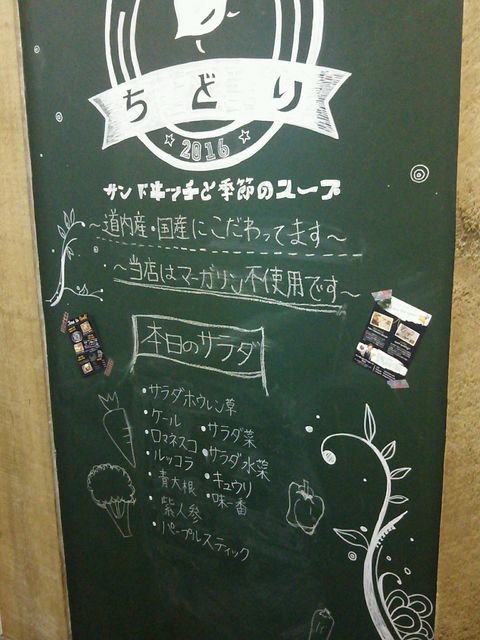 ちどり
☆2016☆
サンドヰッチと季節のスープ
～道内産・国産にこだわってます～
～当店はマーガリン不使用です～
本日のサラダ
・サラダホウレン草
・ケール
・ロマネスコ
・ルッコラ
・青大根
・紫人参
・パープルスティック
・サラダ菜
・サラダ水菜
・キュウリ
・味一番